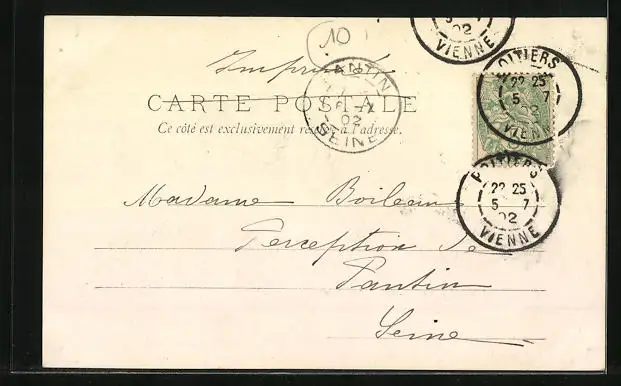 10
Imprimé
CARTE POSTALE
Ce côté est exclusivement réservé à l'adresse.
PANTIN
6 -7
02
SEINE
5 7
02
VIENNE
POITIERS
22 25
5 7
VIENNE
POITIERS
22 25
5 7
02
VIENNE
Madame Boileau
Perception de
Pantin
Seine